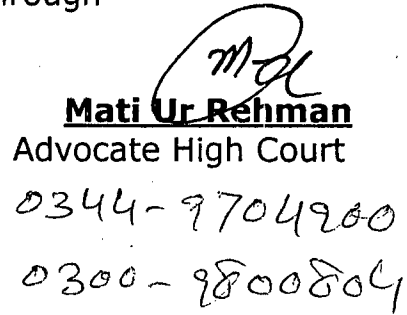 hrough
Mati Ur Rehman
Advocate High Court
0344-9704900
0300-9800804